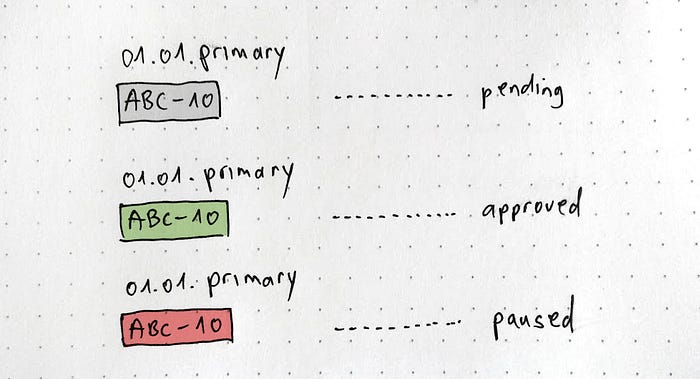 01.01.primary
ABC-10 ----------- pending
01.01.primary
ABC-10 ------------ approved
01.01.primary
ABC-10 ----------- paused